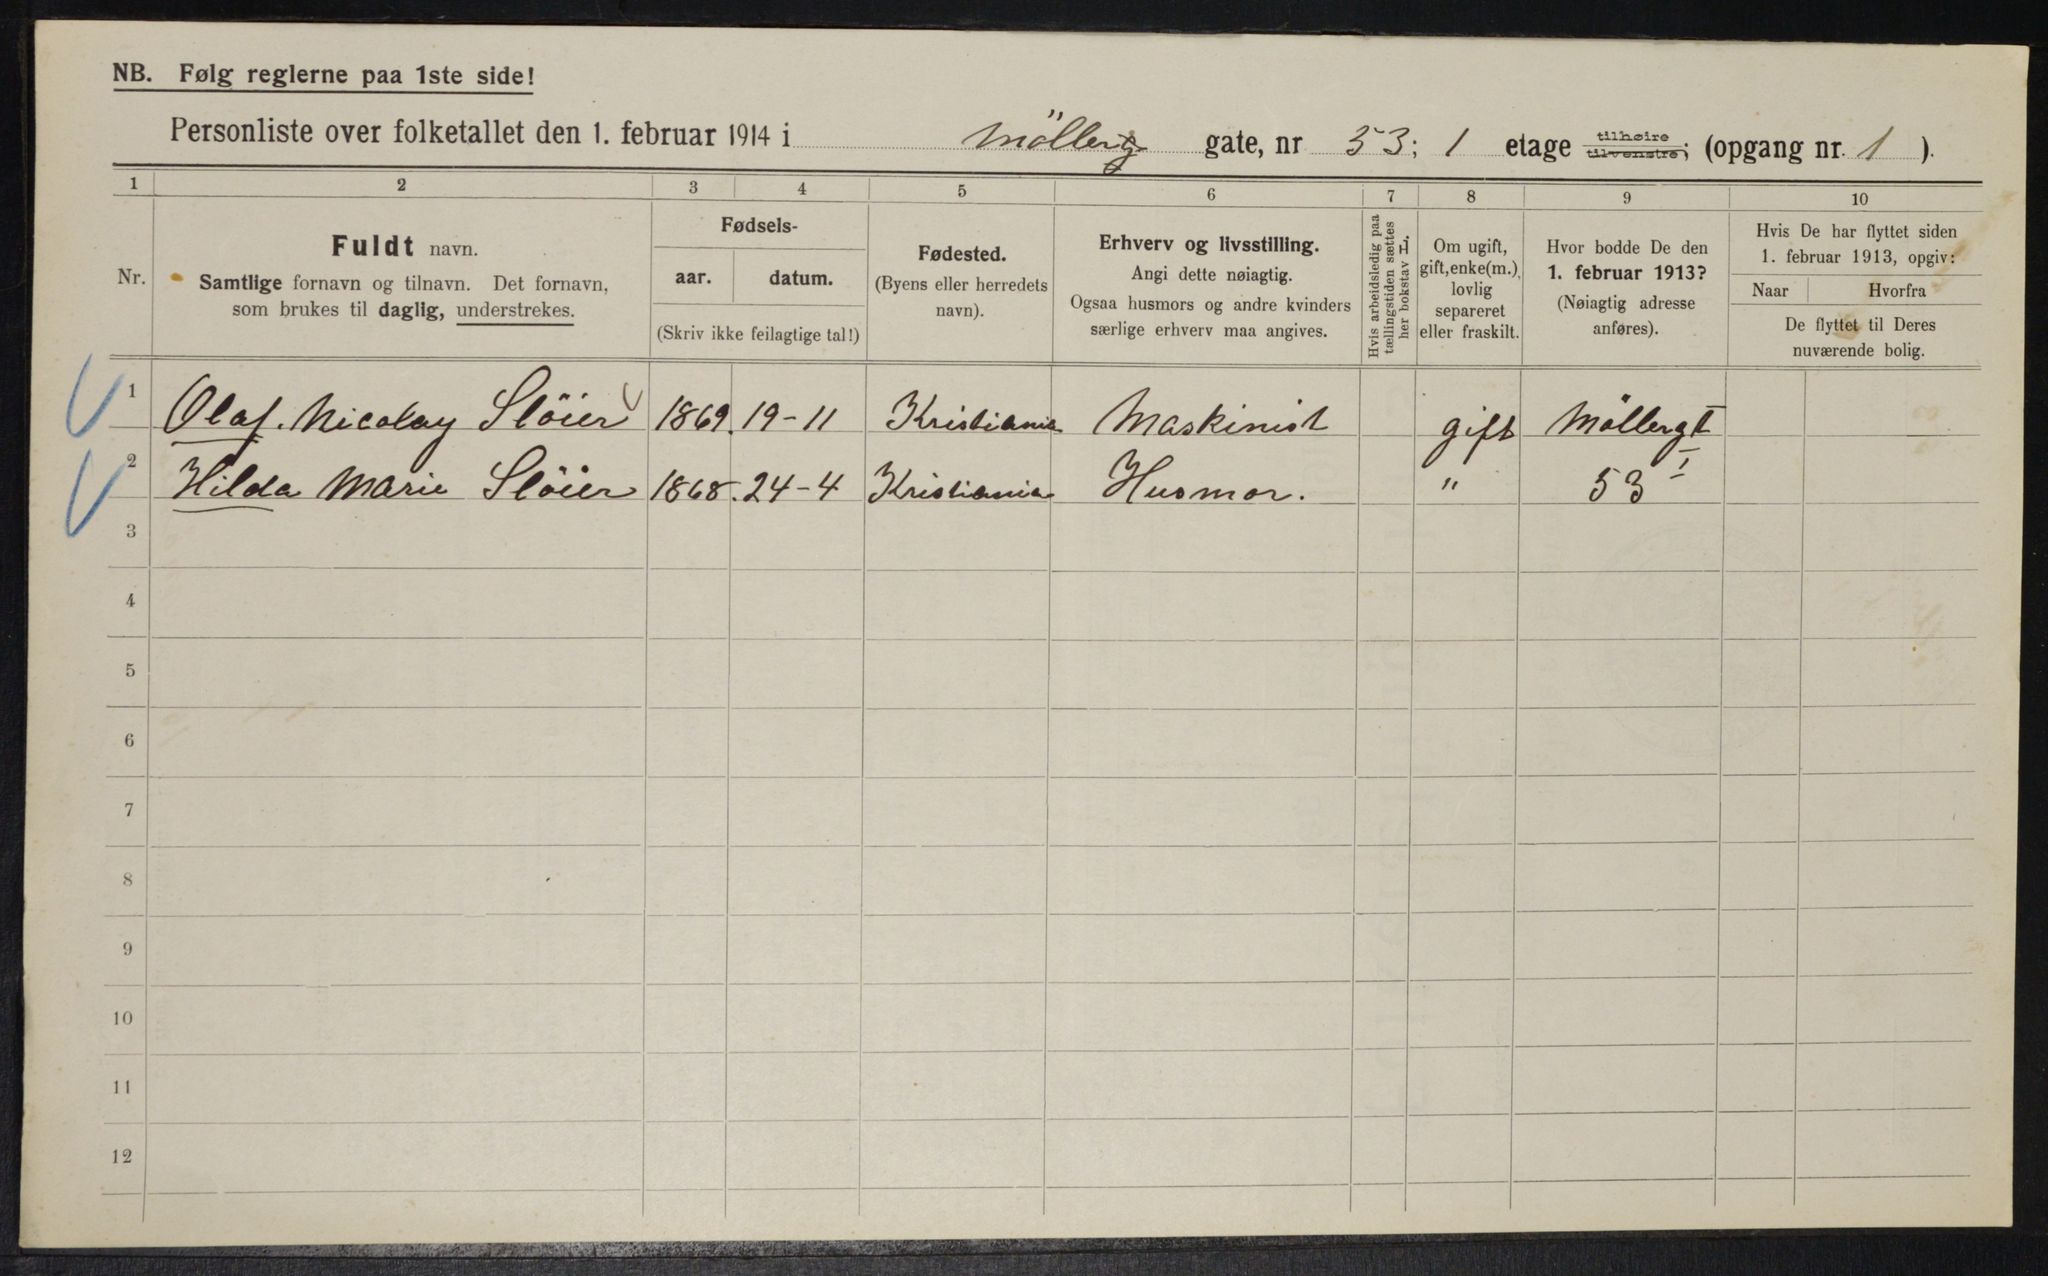 NB. Følg reglerne paa 1ste side!
Personliste over folketallet den 1. februar 1914 i Möllerg gate, nr 53; 1 etage tilhøire tilvenstre; (opgang nr. 1 ).
1 2 3 4 5 6 7 8 9 10
Nr.
Fuldt navn.
Samtlige fornavn og tilnavn. Det fornavn,
som brukes til daglig, understrekes.
Fødsels-
aar. datum.
(Skriv ikke feilagtige tal!)
Fødested.
(Byens eller herredets
navn).
Erhverv og livsstilling.
Angi dette nøiagtig.
Ogsaa husmors og andre kvinders
særlige erhverv maa angives.
Hvis arbeidsledig paa
tællingstiden sættes
her bokstav L.
Om ugift,
gift, enke(m.),
lovlig
separeret
eller fraskilt.
Hvor bodde De den
1. februar 1913?
(Nøiagtig adresse
anføres).
Hvis De har flyttet siden
1. februar 1913, opgiv:
Naar Hvorfra
De flyttet til Deres
nuværende bolig.
1 Olaf. Nicolay Slöier 1869. 19-11 Kristiania Maskinist gift Möllergt
2 Hilda Marie Slöier 1868. 24-4 Kristiania Husmor. " 53 I
3
4
5
6
7
8
9
10
11
12